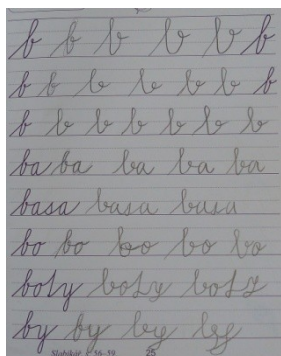 b b b b b b
b b b b b b b
b b b b b b b
ba ba ba ba ba
basa basa basa
bo bo bo bo bo
boty boty boty
by by by by
Slabikář, s. 56-59 25